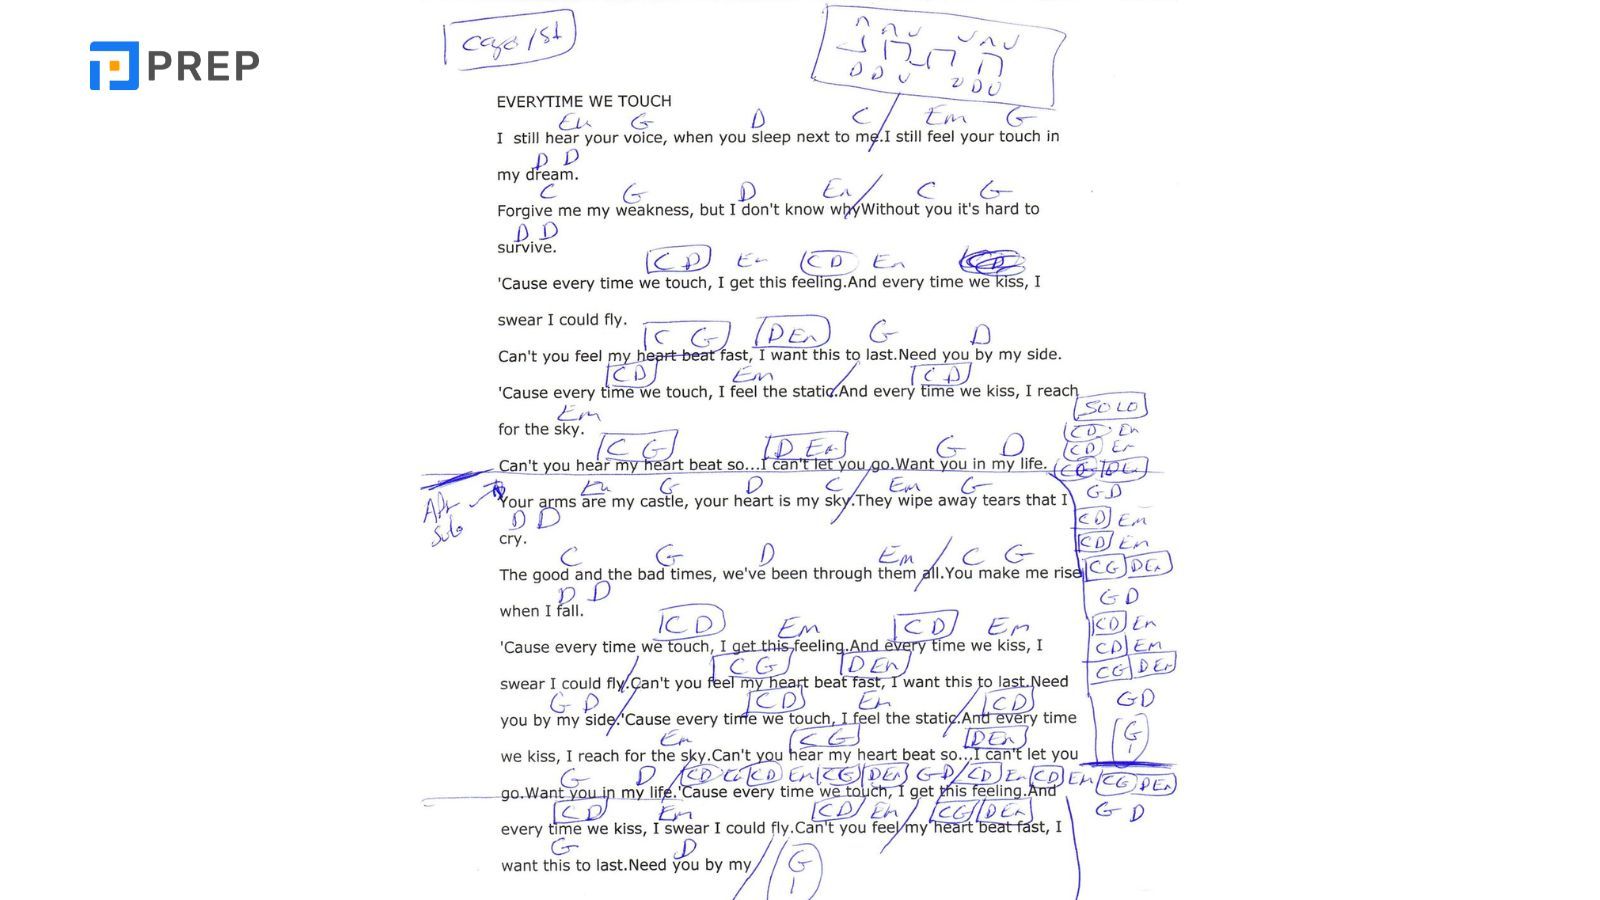 PREP
EVERYTIME WE TOUCH
Em G D C Em G
I still hear your voice, when you sleep next to me.I still feel your touch in
D D
my dream.
C G D Em C G
Forgive me my weakness, but I don't know whyWithout you it's hard to
D D
survive.
C D Em C D Em
'Cause every time we touch, I get this feeling.And every time we kiss, I
swear I could fly.
C G D Em G D
Can't you feel my heart beat fast, I want this to last.Need you by my side.
C D Em C D
'Cause every time we touch, I feel the static.And every time we kiss, I reach
Em
for the sky.
C G D Em G D
Can't you hear my heart beat so...I can't let you go.Want you in my life.
Em G D C Em G
Your arms are my castle, your heart is my sky.They wipe away tears that I
D D
cry.
C G D Em C G
The good and the bad times, we've been through them all.You make me rise
D D
when I fall.
C D Em C D Em
'Cause every time we touch, I get this feeling.And every time we kiss, I
C G D Em
swear I could fly.Can't you feel my heart beat fast, I want this to last.Need
G D C D Em C D
you by my side.'Cause every time we touch, I feel the static.And every time
Em C G D Em
we kiss, I reach for the sky.Can't you hear my heart beat so...I can't let you
G D C D C D Em C G D Em G D C D Em C D Em C G D Em
go.Want you in my life.'Cause every time we touch, I get this feeling.And
C D Em C D Em C G D Em
every time we kiss, I swear I could fly.Can't you feel my heart beat fast, I
G D G
want this to last.Need you by my
SOLO
C D Em
C D Em
C G D Em
G D
C D Em
C D Em
C G D Em
G D
C D Em
C D Em
C G D Em
G D
G
G D